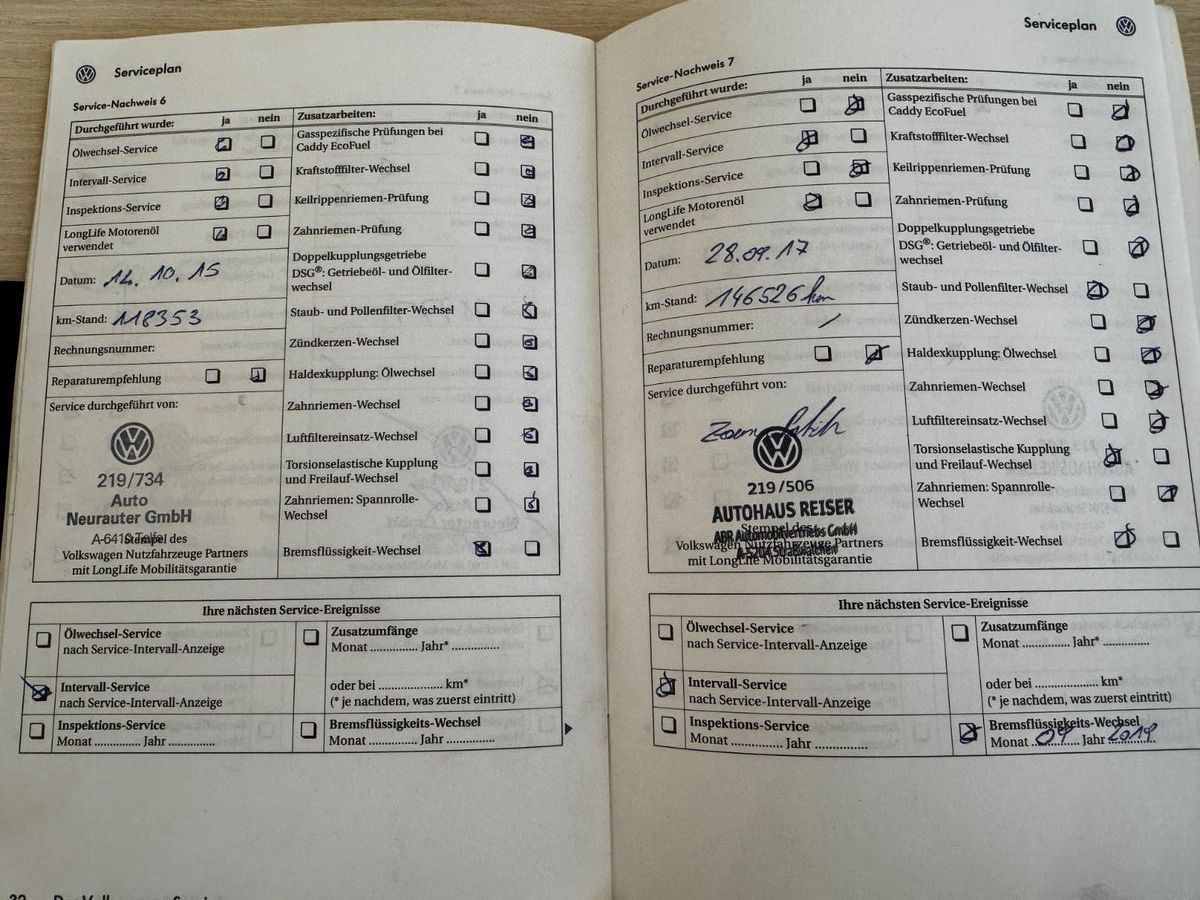 Serviceplan
Service-Nachweis 6
Durchgeführt wurde: ja nein
Ölwechsel-Service
Intervall-Service
Inspektions-Service
LongLife Motorenöl
verwendet
Datum: 12.10.15
km-Stand: 118353
Rechnungsnummer:
Reparaturempfehlung
Service durchgeführt von:
219/734
Auto
Neurauter GmbH
Stempel des
Volkswagen Nutzfahrzeuge Partners
mit LongLife Mobilitätsgarantie
Zusatzarbeiten: ja nein
Gasspezifische Prüfungen bei
Caddy EcoFuel
Kraftstofffilter-Wechsel
Keilrippenriemen-Prüfung
Zahnriemen-Prüfung
Doppelkupplungsgetriebe
DSG®: Getriebeöl- und Ölfilter-
wechsel
Staub- und Pollenfilter-Wechsel
Zündkerzen-Wechsel
Haldexkupplung: Ölwechsel
Zahnriemen-Wechsel
Luftfiltereinsatz-Wechsel
Torsionselastische Kupplung
und Freilauf-Wechsel
Zahnriemen: Spannrolle-
Wechsel
Bremsflüssigkeit-Wechsel
Ihre nächsten Service-Ereignisse
Ölwechsel-Service
nach Service-Intervall-Anzeige
Intervall-Service
nach Service-Intervall-Anzeige
Inspektions-Service
Monat .............. Jahr ..............
Zusatzumfänge
Monat .............. Jahr* ..............
oder bei .................... km*
(* je nachdem, was zuerst eintritt)
Bremsflüssigkeits-Wechsel
Monat .............. Jahr ..............
Serviceplan
Service-Nachweis 7
Durchgeführt wurde: ja nein
Ölwechsel-Service
Intervall-Service
Inspektions-Service
LongLife Motorenöl
verwendet
Datum: 28.09.17
km-Stand: 146526 km
Rechnungsnummer: /
Reparaturempfehlung
Service durchgeführt von:
219/506
AUTOHAUS REISER
ABR Automobilvertriebs GmbH
A-5204 Straßwalchen
Stempel des
Volkswagen Nutzfahrzeuge Partners
mit LongLife Mobilitätsgarantie
Zusatzarbeiten: ja nein
Gasspezifische Prüfungen bei
Caddy EcoFuel
Kraftstofffilter-Wechsel
Keilrippenriemen-Prüfung
Zahnriemen-Prüfung
Doppelkupplungsgetriebe
DSG®: Getriebeöl- und Ölfilter-
wechsel
Staub- und Pollenfilter-Wechsel
Zündkerzen-Wechsel
Haldexkupplung: Ölwechsel
Zahnriemen-Wechsel
Luftfiltereinsatz-Wechsel
Torsionselastische Kupplung
und Freilauf-Wechsel
Zahnriemen: Spannrolle-
Wechsel
Bremsflüssigkeit-Wechsel
Ihre nächsten Service-Ereignisse
Ölwechsel-Service
nach Service-Intervall-Anzeige
Intervall-Service
nach Service-Intervall-Anzeige
Inspektions-Service
Monat .............. Jahr ..............
Zusatzumfänge
Monat .............. Jahr* ..............
oder bei .................... km*
(* je nachdem, was zuerst eintritt)
Bremsflüssigkeits-Wechsel
Monat 09 Jahr 2019